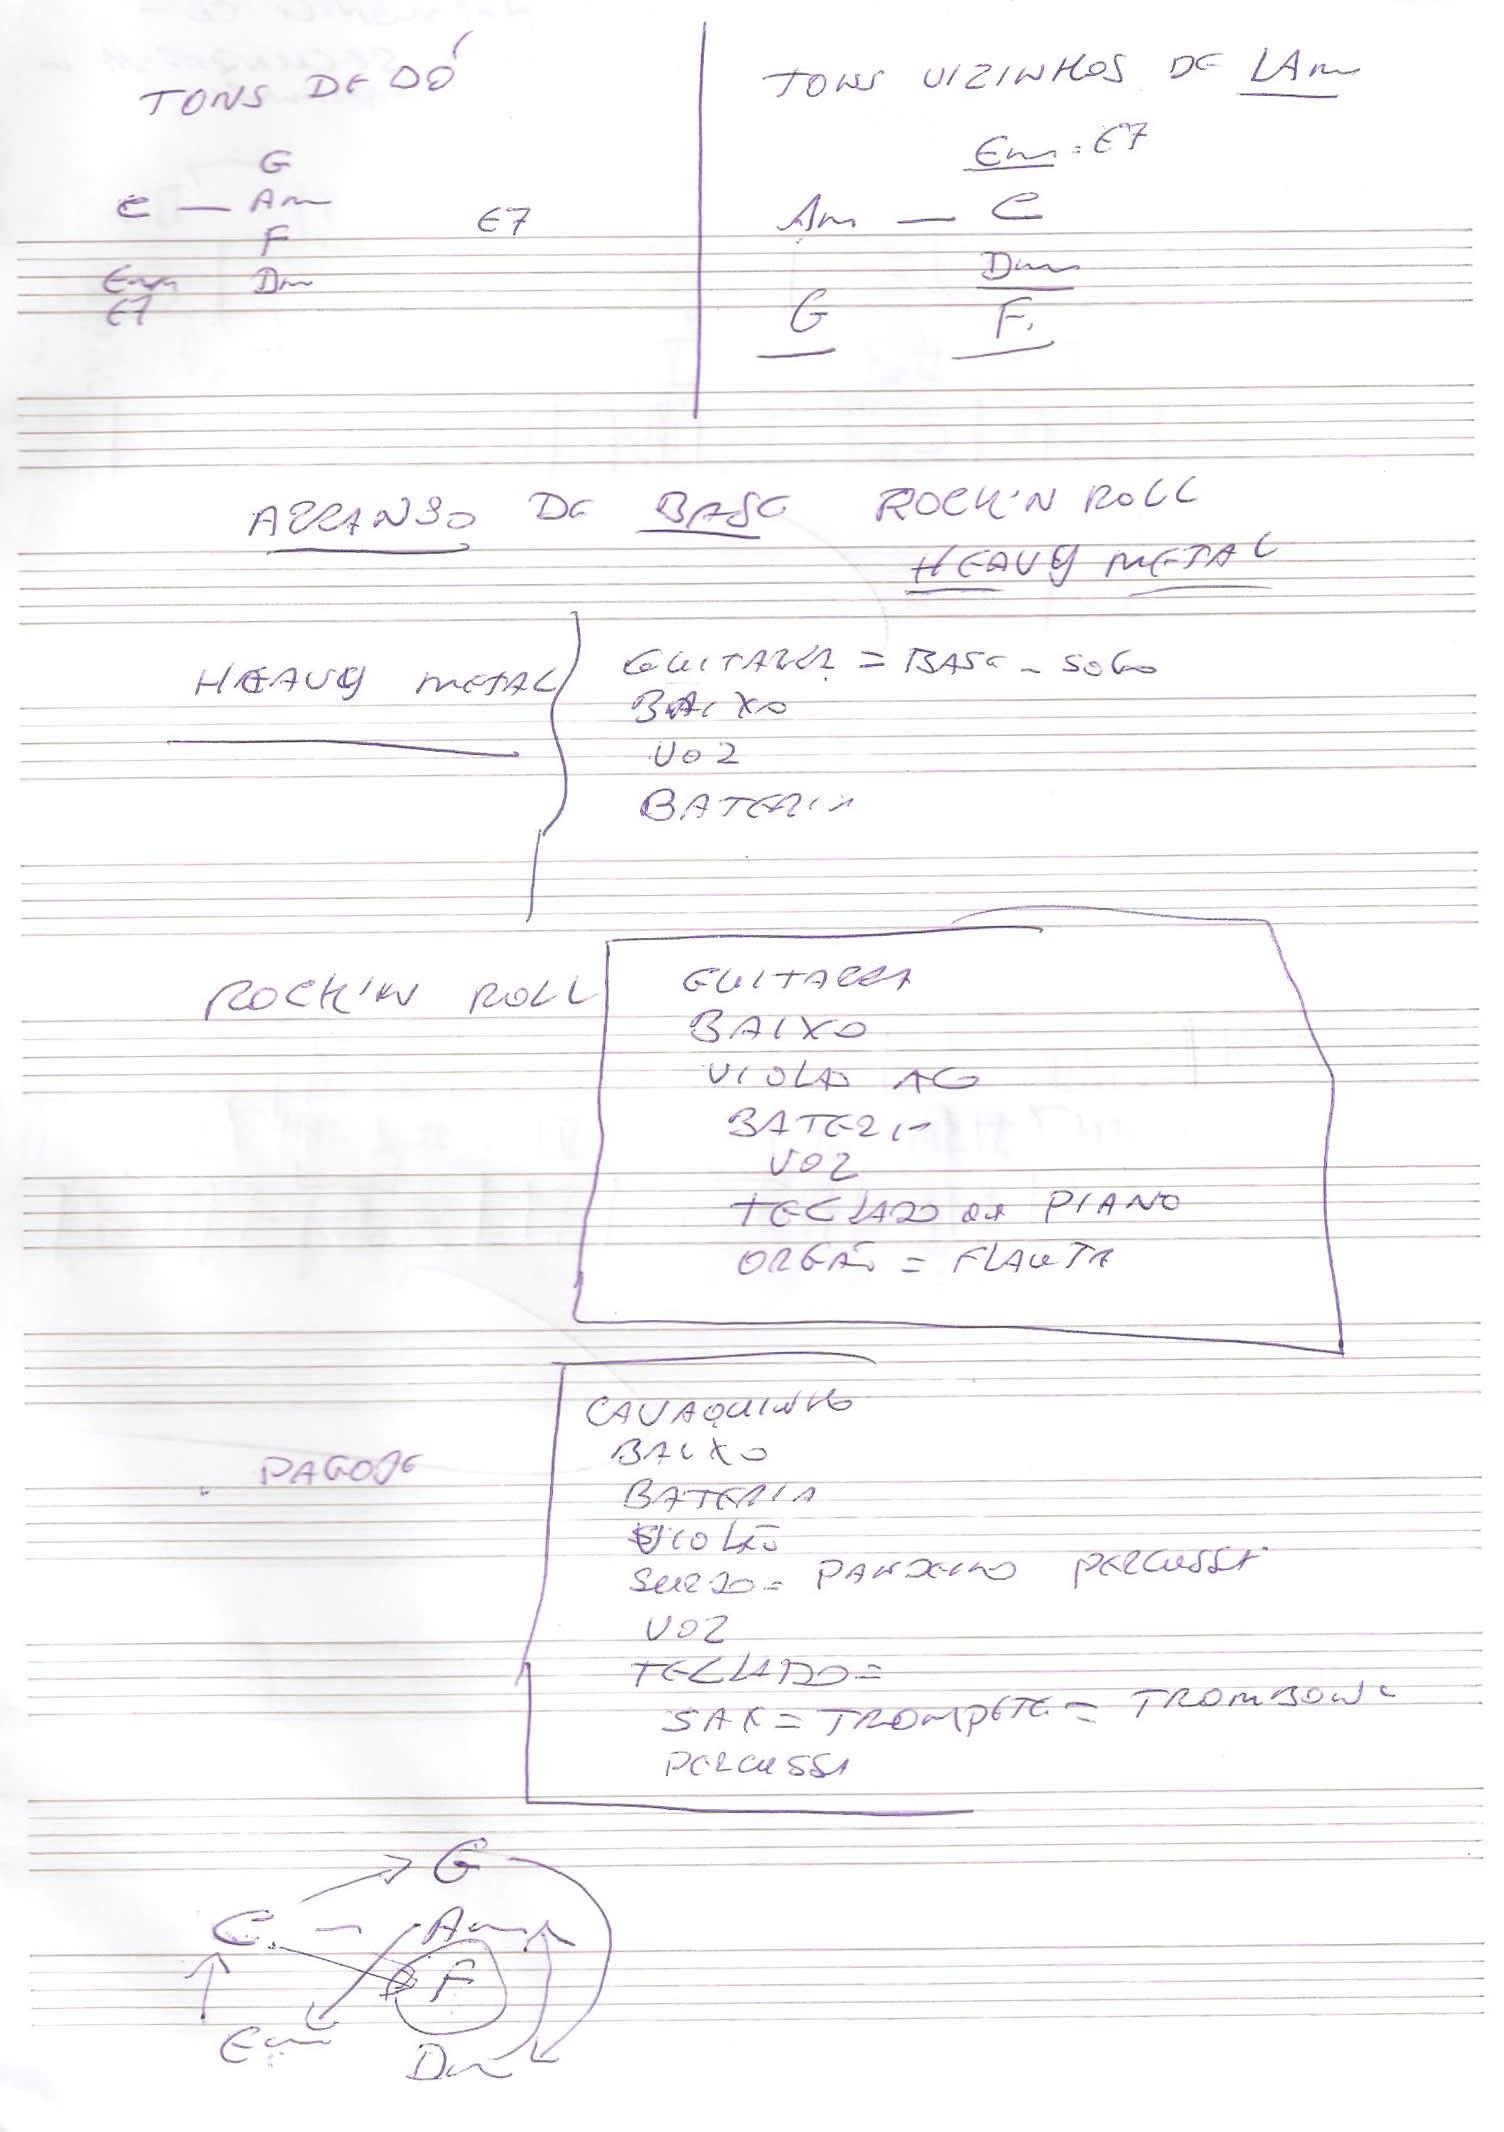 TONS DE DÓ
G
C — Am
E7
F
Em Dm
E7
TONS VIZINHOS DE LAm
Em = E7
Am — C
Dm
G F.
ARRANJO DE BASE ROCK'N ROLL
HEAVY METAL
HEAVY METAL
GUITARRA = BASE - SOLO
BAIXO
VOZ
BATERIA
ROCK'N ROLL
GUITARRA
BAIXO
VIOLAO AÇO
BATERIA
VOZ
TECLADO OU PIANO
ORGÃO = FLAUTA
PAGODE
CAVAQUINHO
BAIXO
BATERIA
VIOLÃO
SURDO = PANDEIRO PERCUSSA
VOZ
TECLADO =
SAX = TROMPETE = TROMBONE
PERCUSSA
G
C. — Am
F
Em Dm